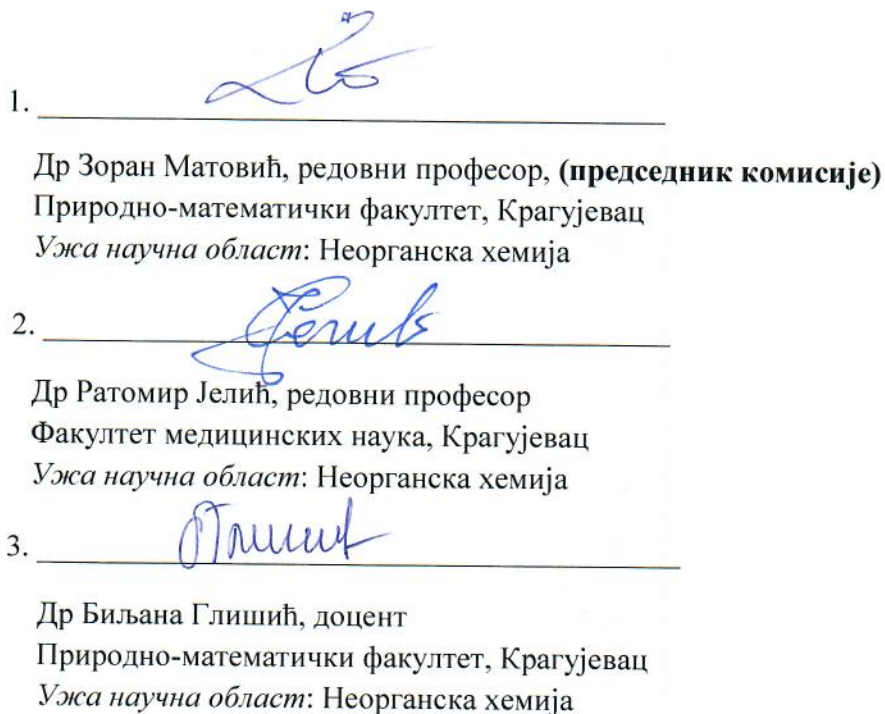 1.
Др Зоран Матовић, редовни професор, (председник комисије)
Природно-математички факултет, Крагујевац
Ужа научна област: Неорганска хемија
2.
Др Ратомир Јелић, редовни професор
Факултет медицинских наука, Крагујевац
Ужа научна област: Неорганска хемија
3.
Др Биљана Глишић, доцент
Природно-математички факултет, Крагујевац
Ужа научна област: Неорганска хемија